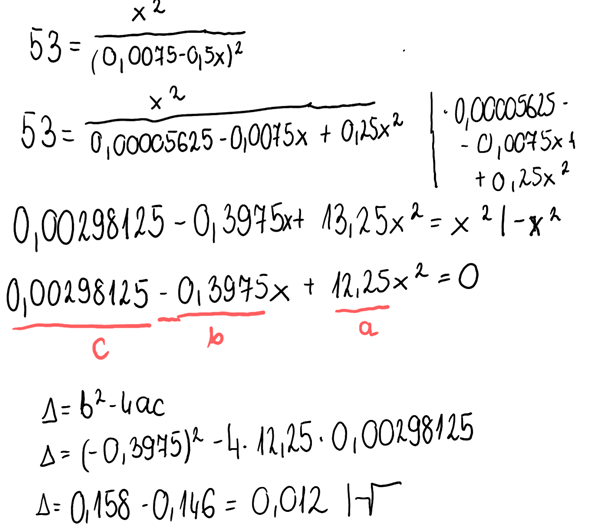 53 = x² / (0,0075-0,5x)²
53 = x² / 0,00005625 - 0,0075x + 0,25x² | · 0,00005625 -
- 0,0075x +
+ 0,25x²
0,00298125 - 0,3975x + 13,25x² = x² | - x²
0,00298125 - 0,3975x + 12,25x² = 0
c b a
Δ = b² - 4ac
Δ = (-0,3975)² - 4 · 12,25 · 0,00298125
Δ = 0,158 - 0,146 = 0,012 | √